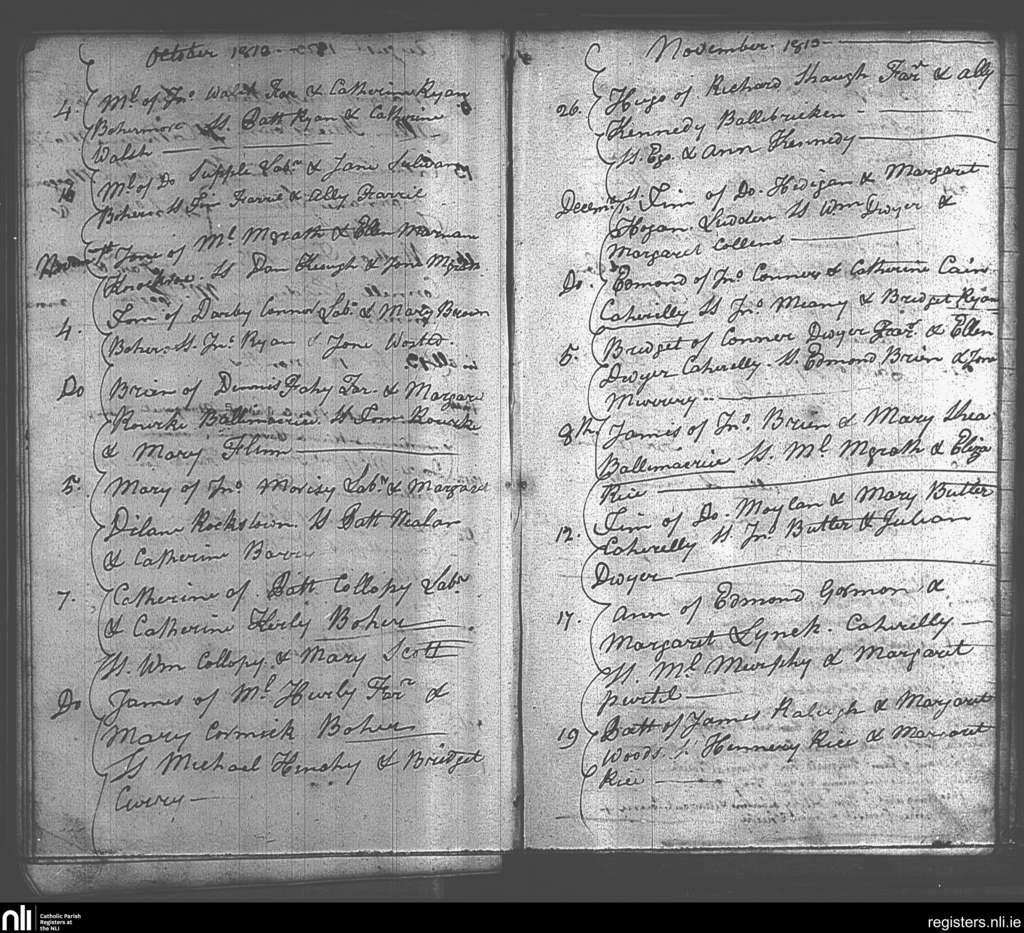 October 1813
4. Ml of Jno Walsh Far & Catherine Ryan
Bohermore Ss Patt Ryan & Catherine
Walsh
Ml of Do Supple Labr & Jane Sulivan
Boher Ss Jim Farril & Ally Farril
1st Jone of Ml Mgrath & Ellen
Ss Dan Keough & Jone Mgrath
4. Tom of Darby Connor Labr & Mary Brown
Boher. Ss Jno Ryan & Jone
Do Brien of Dinnis Fahy Far. & Margaret
Rourke Ballinacrice Ss Tom Rourke
& Mary Flinn
5. Mary of Jno Morisy Labr & Margaret
Dilane Rockstown. Ss Patt Mealan
& Catherine Barry
7. Catherine of Patt Collopy Labr
& Catherine Kerly Boher
Ss. Wm Collopy. & Mary Scott
Do James of Ml Hurly Farr &
Mary Cormick Boher
Ss Michael Henchy & Bridget
November. 1813
26. Hugo of Richard Shaugh Farr & Ally
Kennedy Ballebricken
Ss. Ego. & Ann Kennedy
Decem Tim of Do. Hedigan & Margaret
Hogan. Luddon Ss Wm Dwyer &
Margaret Collens
Do. Edmond of Jno Conners & Catherine Cain
Caherelly Ss Jno Meany & Bridget Ryan
5. Bridget of Connor Dwyer Farr. & Ellen
Dwyer Caherelly. Ss. Edmond Brien & Jone
8th James of Jno Brien & Mary Shea
Ballinacrice Ss. Ml Mgrath & Eliza
Rice
12. Tim of Do. Moylan & Mary Butler
Caherelly Ss Jno Butler & Julian
Dwyer
17. Ann of Edmond Gormon &
Margaret Lynch. Caherelly
Ss. Ml Murphy & Margaret
purtil
19 Patt of James Raleigh & Margaret
Woods. Ss Hennery Rice & Margaret
Rice
nli Catholic Parish
Registers at
the NLI
registers.nli.ie